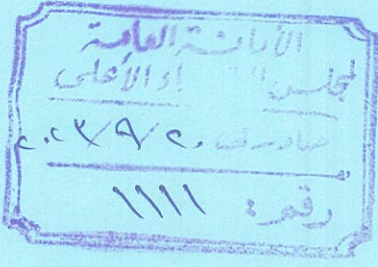 الأمانة العامة
لمجلس الأعلى
صادرت ٢٠٢٣/٩/٢٠
رقم: ١١١١